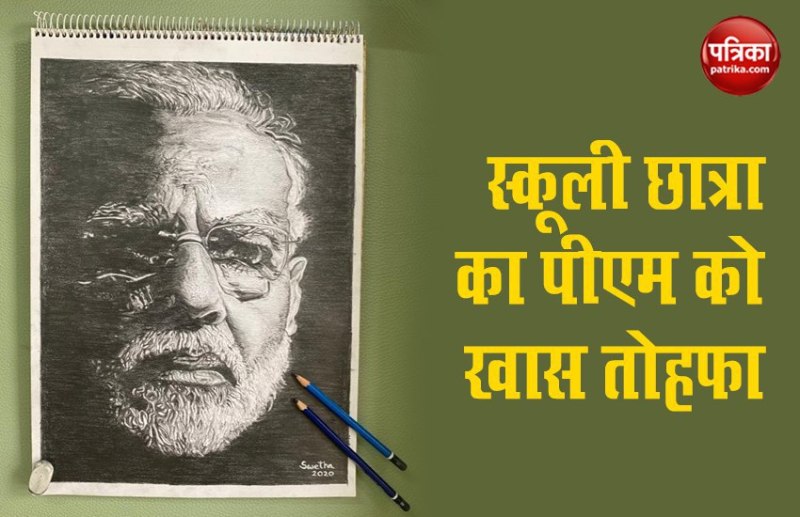 पत्रिका
patrika.com
स्कूली छात्रा
का पीएम को
खास तोहफा
Swetha
2020